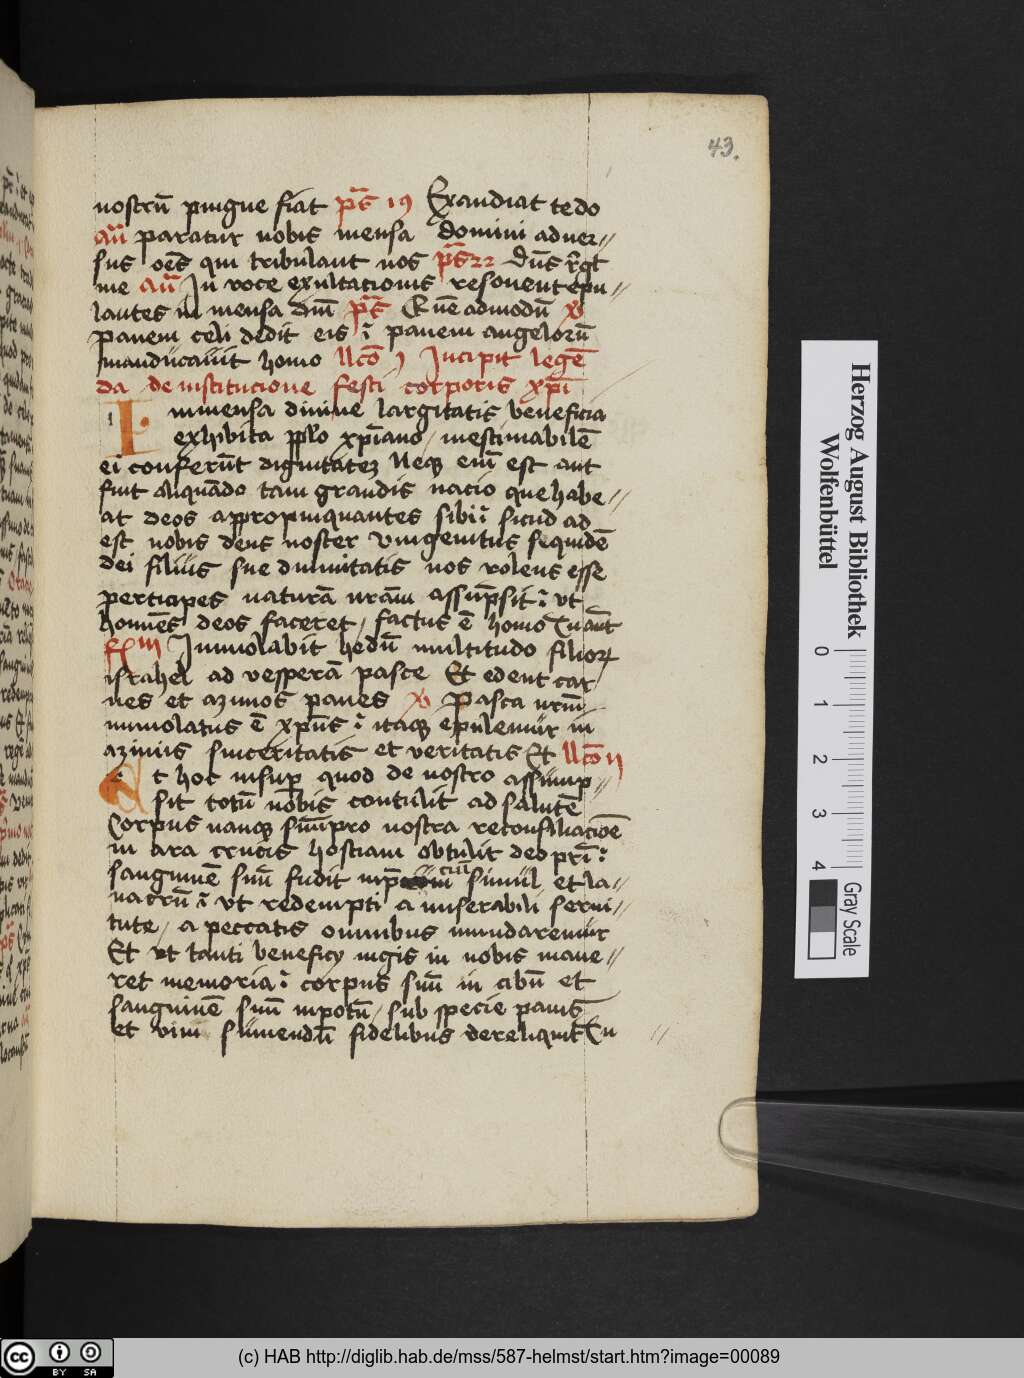 43.
nostrū pingue fiat pͣs 19 Exaudiat te do
an̄ paratur nobis mensa domini aduer//
sus oēs qui tribulant nos pͣs 22 dn̄s
me an̄ In voce exultacionis resonent epu//
lantes in mensa dn̄i pͣs Quē admodū v̓
panem celi dedit eis : panem angelorū
manducauit homo llc̄o 1 Incipit legē
da de institucione festi corporis xp̄i
Inmensa diuine largitatis beneficia
exhibita pplo xp̄iano / inestimabilē
ei conferūt dignitatez Neqꝫ eni est aut
fuit aliquādo tam grandis nacio que habe//
at deos appropinquantes sibi : sicud ad
est nobis deus noster Vnigenitus sequidē
dei filius sue diuinitatis nos volens esse
perticipes naturā nrām assūpsit : vt
homēs deos faceret / factus ē homo
Immolabit hedū multitudo filioꝝ
israhel ad vesperā pasce Et edent car
nes et azimos panes v̓ Pasca nrm̄
immolatus ē xpūs : itaqꝫ epulemur in
azimis sinceritatis et veritatis Et llc̄o 11
Et hoc insuꝑ quod de nostro assump//
sit totū nobis contulit ad salutē
Corpus namqꝫ suū pro nostra reconsiliacioē
in ara crucis hostiam obtulit deo pri :
sanguinē suū fudit in p̄cium simul et la//
uacrū : vt redempti a miserabili serui//
tute / a peccatis omnibus mundaremur
Et vt tanti beneficij iugis in nobis mane//
ret memoria : corpus suū in cibū et
sanguinē suū in potū / sub specie panis
et vini sumendū fidelibus dereliquit
Herzog August Bibliothek
Wolfenbüttel
0 1 2 3 4
Gray Scale
cc BY SA
(c) HAB http://diglib.hab.de/mss/587-helmst/start.htm?image=00089